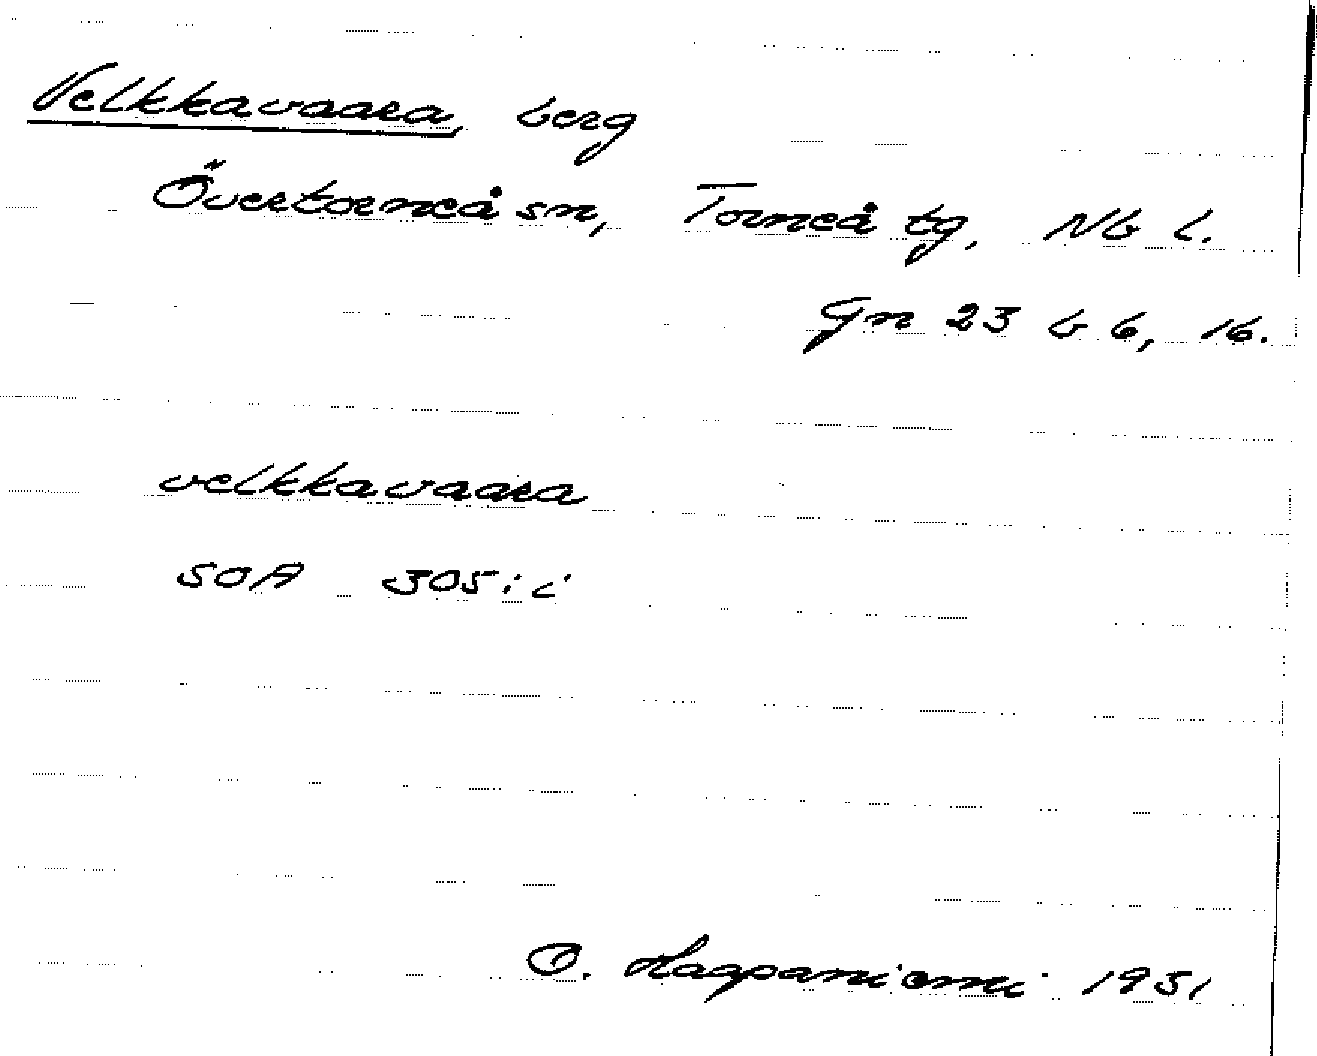 Velkkavaara, berg
Övertorneå sn, Torneå tg, Nb l.
Gn 23 b 6, 16.
velkkavaara
SOA 305:i
O. Haapaniemi 1951